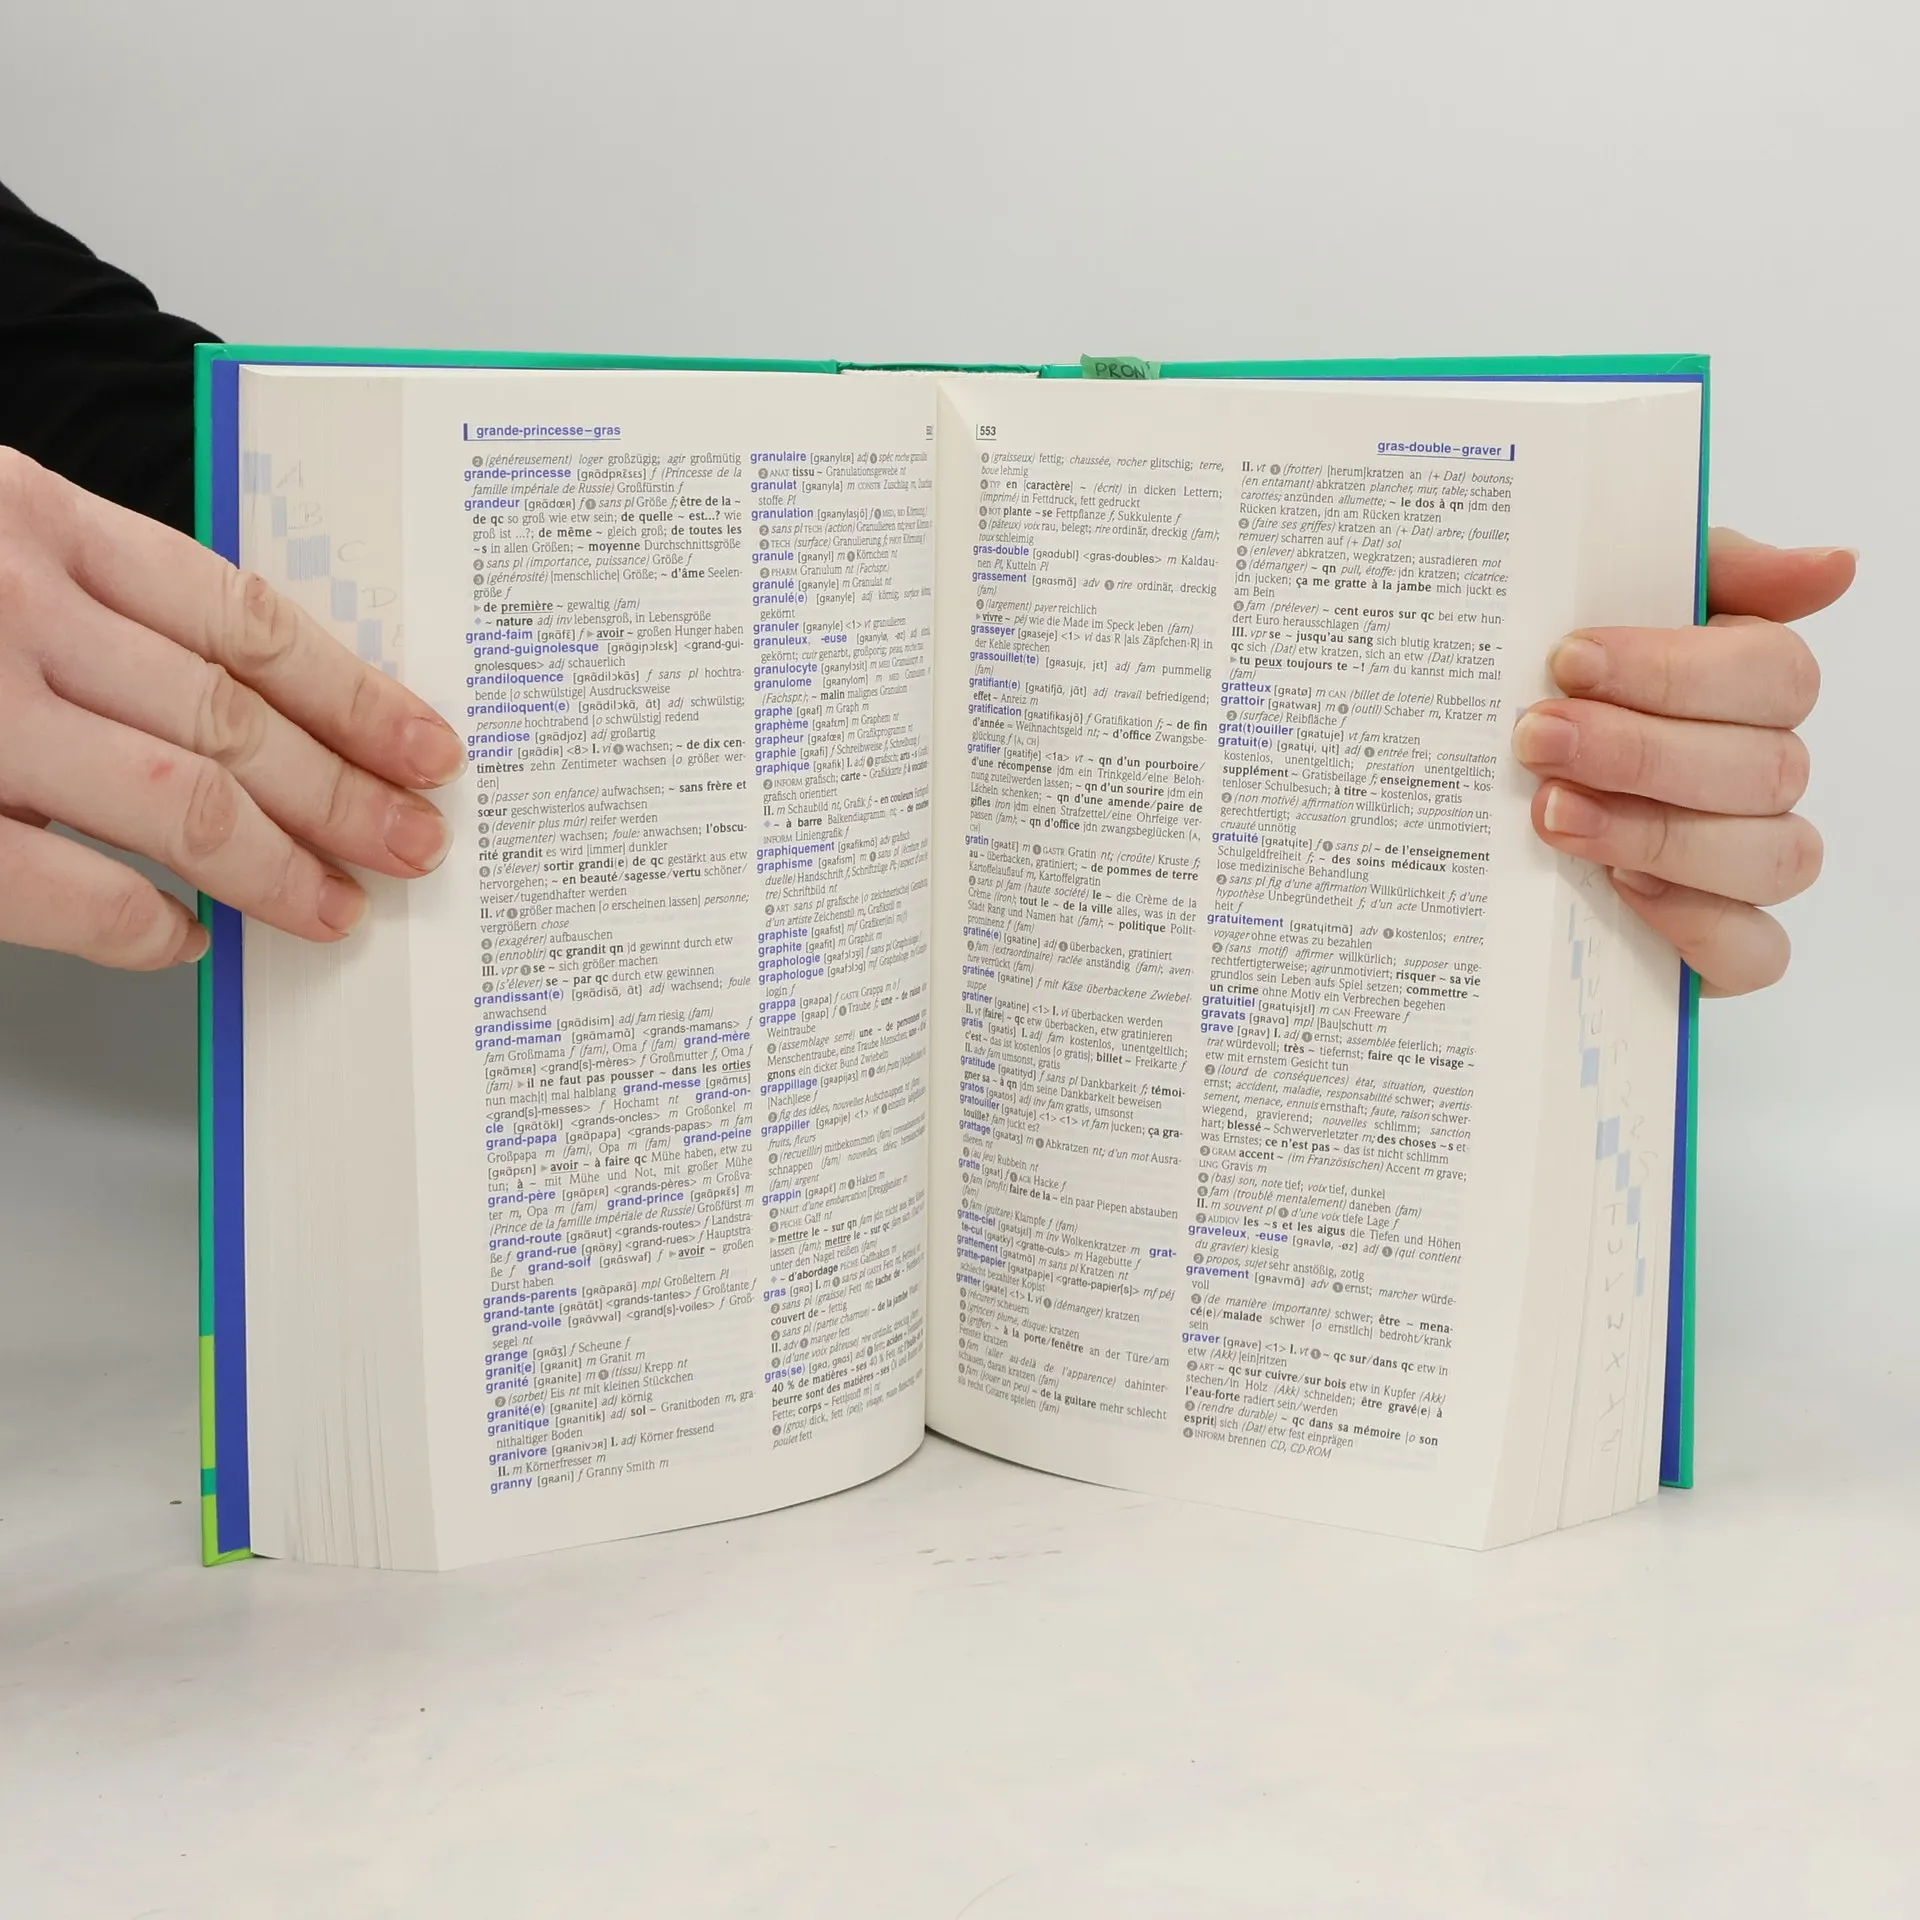 PRON
grande-princesse–gras
❷ (généreusement) loger großzügig; agir großmütig
grande-princesse [gʀɑ̃dpʀɛ̃sɛs] f (Princesse de la
famille impériale de Russie) Großfürstin f
grandeur [gʀɑ̃dœʀ] f ❶ sans pl Größe f; être de la ~
de qc so groß wie etw sein; de quelle ~ est...? wie
groß ist ...?; de même ~ gleich groß; de toutes les
~s in allen Größen; ~ moyenne Durchschnittsgröße
❷ sans pl (importance, puissance) Größe f
❸ (générosité) [menschliche] Größe; ~ d'âme Seelen-
größe f
▶ de première ~ gewaltig (fam)
◆ ~ nature adj inv lebensgroß, in Lebensgröße
grand-faim [gʀɑ̃fɛ̃] f ▶ avoir ~ großen Hunger haben
grand-guignolesque [gʀɑ̃giɲɔlɛsk] <grand-gui-
gnolesques> adj schauerlich
grandiloquence [gʀɑ̃dilɔkɑ̃s] f sans pl hochtra-
bende [o schwülstige] Ausdrucksweise
grandiloquent(e) [gʀɑ̃dilɔkɑ̃, ɑ̃t] adj schwülstig;
personne hochtrabend [o schwülstig] redend
grandiose [gʀɑ̃djoz] adj großartig
grandir [gʀɑ̃diʀ] <8> I. vi ❶ wachsen; ~ de dix cen-
timètres zehn Zentimeter wachsen [o größer wer-
den]
❷ (passer son enfance) aufwachsen; ~ sans frère et
sœur geschwisterlos aufwachsen
❸ (devenir plus mûr) reifer werden
❹ (augmenter) wachsen; foule: anwachsen; l'obscu-
rité grandit es wird [immer] dunkler
❺ (s'élever) sortir grandi(e) de qc gestärkt aus etw
hervorgehen; ~ en beauté/sagesse/vertu schöner/
weiser/tugendhafter werden
II. vt ❶ größer machen [o erscheinen lassen] personne;
vergrößern chose
❷ (exagérer) aufbauschen
❸ (ennoblir) qc grandit qn jd gewinnt durch etw
III. vpr ❶ se ~ sich größer machen
❷ (s'élever) se ~ par qc durch etw gewinnen
grandissant(e) [gʀɑ̃disɑ̃, ɑ̃t] adj wachsend; foule
anwachsend
grandissime [gʀɑ̃disim] adj fam riesig (fam)
grand-maman [gʀɑ̃mamɑ̃] <grands-mamans> f
fam Großmama f (fam), Oma f (fam) grand-mère
[gʀɑ̃mɛʀ] <grand[s]-mères> f Großmutter f, Oma f
(fam) ▶ il ne faut pas pousser ~ dans les orties
nun mach[t] mal halblang grand-messe [gʀɑ̃mɛs]
<grand[s]-messes> f Hochamt nt grand-on-
cle [gʀɑ̃tɔ̃kl] <grands-oncles> m Großonkel m
grand-papa [gʀɑ̃papa] <grands-papas> m fam
Großpapa m (fam), Opa m (fam) grand-peine
[gʀɑ̃pɛn] ▶ avoir ~ à faire qc Mühe haben, etw zu
tun; à ~ mit Mühe und Not, mit großer Mühe
grand-père [gʀɑ̃pɛʀ] <grands-pères> m Großva-
ter m, Opa m (fam) grand-prince [gʀɑ̃pʀɛ̃s] m
(Prince de la famille impériale de Russie) Großfürst m
grand-route [gʀɑ̃ʀut] <grands-routes> f Landstra-
ße f grand-rue [gʀɑ̃ʀy] <grand-rues> f Hauptstra-
ße f grand-soif [gʀɑ̃swaf] f ▶ avoir ~ großen
Durst haben
grands-parents [gʀɑ̃paʀɑ̃] mpl Großeltern Pl
grand-tante [gʀɑ̃tɑ̃t] <grands-tantes> f Großtante f
grand-voile [gʀɑ̃vwal] <grand[s]-voiles> f Groß-
segel nt
grange [gʀɑ̃ʒ] f Scheune f
granit(e) [gʀanit] m Granit m
granité [gʀanite] m ❶ (tissu) Krepp nt
❷ (sorbet) Eis nt mit kleinen Stückchen
granité(e) [gʀanite] adj körnig
granitique [gʀanitik] adj sol ~ Granitboden m, gra-
nithaltiger Boden
granivore [gʀanivɔʀ] I. adj Körner fressend
II. m Körnerfresser m
granny [gʀani] f Granny Smith m
granulaire [gʀanylɛʀ] adj ❶ spéc roche
❷ ANAT tissu ~ Granulationsgewebe nt
granulat [gʀanyla] m CONSTR Zuschlag m,
stoffe Pl
granulation [gʀanylasjɔ̃] f
❷ sans pl TECH (action) Granulieren nt;
❸ TECH (surface) Granulierung f;
granule [gʀanyl] m ❶ Körnchen nt
❷ PHARM Granulum nt (Fachspr.)
granulé [gʀanyle] m Granulat nt
granulé(e) [gʀanyle] adj körnig;
gekörnt
granuler [gʀanyle] <1> vt granulieren
granuleux, -euse [gʀanylø, -øz] adj
gekörnt; cuir genarbt, großporig;
granulocyte [gʀanylɔsit] m MED
granulome [gʀanylom] m MED Granulom nt
(Fachspr.); ~ malin malignes Granulom
graphe [gʀaf] m Graph m
graphème [gʀafɛm] m Graphem nt
grapheur [gʀafœʀ] m Grafikprogramm nt
graphie [gʀafi] f Schreibweise f, Schreibung f
graphique [gʀafik] I. adj ❶ grafisch;
❷ INFORM grafisch; carte ~ Grafikkarte f;
grafisch orientiert
II. m Schaubild nt, Grafik f; ~ en couleurs
◆ ~ à barre Balkendiagramm nt;
INFORM Liniengrafik f
graphiquement [gʀafikmɑ̃] adv grafisch
graphisme [gʀafism] m ❶ sans pl
duelle) Handschrift f, Schriftzüge Pl;
tre) Schriftbild nt
❷ ART sans pl grafische [o zeichnerische]
d'un artiste Zeichenstil m, Grafikstil m
graphiste [gʀafist] mf Grafiker(in) m(f)
graphite [gʀafit] m Graphit m
graphologie [gʀafɔlɔʒi] f sans pl Graphologie f
graphologue [gʀafɔlɔg] mf Graphologe
login f
grappa [gʀapa] f GASTR Grappa m o f
grappe [gʀap] f ❶ Traube f; une ~ de raisin
Weintraube
❷ (assemblage serré) une ~ de personnes
Menschentraube, eine Traube Menschen;
gnons ein dicker Bund Zwiebeln
grappillage [gʀapijaʒ] m ❶
[Nach]lese f
❷ fig des idées, nouvelles Aufschnappen nt (fam)
grappiller [gʀapije] <1> vt ❶
fruits, fleurs
❷ (recueillir) mitbekommen (fam)
schnappen (fam) nouvelles, idées;
(fam) argent
grappin [gʀapɛ̃] m ❶ Haken m
❷ NAUT d'une embarcation [Dregg]anker m
❸ PECHE Gaff nt
▶ mettre le ~ sur qn fam jdn nicht aus
lassen (fam); mettre le ~ sur qc fam
unter den Nagel reißen (fam)
◆ ~ d'abordage PECHE Gaffhaken m
gras [gʀɑ] I. m ❶ sans pl GASTR Fett nt,
❷ sans pl (graisse) Fett nt; tache de ~
couvert de ~ fettig
❸ sans pl (partie charnue) ~ de la jambe
II. adv ❶ manger fett
❷ (d'une voix pâteuse) rire ordinär,
gras(se) [gʀɑ, gʀɑs] adj ❶ fett;
40 % de matières ~ses 40 % Fett
beurre sont des matières ~ses Öl und
Fette; corps ~ Fett[stoff m] nt
❷ (gros) dick, fett (pej);
poulet fett
553
gras-double–graver
❸ (graisseux) fettig; chaussée, rocher glitschig; terre,
boue lehmig
❹ TYP en [caractère] ~ (écrit) in dicken Lettern;
(imprimé) in Fettdruck, fett gedruckt
❺ BOT plante ~se Fettpflanze f, Sukkulente f
❻ (pâteux) voix rau, belegt; rire ordinär, dreckig (fam);
toux schleimig
gras-double [gʀɑdubl] <gras-doubles> m Kaldau-
nen Pl, Kutteln Pl
grassement [gʀɑsmɑ̃] adv ❶ rire ordinär, dreckig
(fam)
❷ (largement) payer reichlich
▶ vivre ~ péj wie die Made im Speck leben (fam)
grasseyer [gʀaseje] <1> vi das R [als Zäpfchen-R] in
der Kehle sprechen
grassouillet(te) [gʀasujɛ, jɛt] adj fam pummelig
(fam)
gratifiant(e) [gʀatifjɑ̃, jɑ̃t] adj travail befriedigend;
effet ~ Anreiz m
gratification [gʀatifikasjɔ̃] f Gratifikation f; ~ de fin
d'année = Weihnachtsgeld nt; ~ d'office Zwangsbe-
glückung f (A, CH)
gratifier [gʀatifje] <1a> vt ~ qn d'un pourboire/
d'une récompense jdm ein Trinkgeld/eine Beloh-
nung zuteilwerden lassen; ~ qn d'un sourire jdm ein
Lächeln schenken; ~ qn d'une amende/paire de
gifles iron jdm einen Strafzettel/eine Ohrfeige ver-
passen (fam); ~ qn d'office jdn zwangsbeglücken (A,
CH)
gratin [gʀatɛ̃] m ❶ GASTR Gratin nt; (croûte) Kruste f;
au ~ überbacken, gratiniert; ~ de pommes de terre
Kartoffelauflauf m, Kartoffelgratin
❷ sans pl fam (haute société) le ~ die Crème de la
Crème (iron); tout le ~ de la ville alles, was in der
Stadt Rang und Namen hat (fam); ~ politique Polit-
prominenz f (fam)
gratiné(e) [gʀatine] adj ❶ überbacken, gratiniert
❷ fam (extraordinaire) raclée anständig (fam); aven-
ture verrückt (fam)
gratinée [gʀatine] f mit Käse überbackene Zwiebel-
suppe
gratiner [gʀatine] <1> I. vi überbacken werden
II. vt [faire] ~ qc etw überbacken, etw gratinieren
gratis [gʀatis] I. adj fam kostenlos, unentgeltlich;
c'est ~ das ist kostenlos [o gratis]; billet ~ Freikarte f
II. adv fam umsonst, gratis
gratitude [gʀatityd] f sans pl Dankbarkeit f; témoi-
gner sa ~ à qn jdm seine Dankbarkeit beweisen
gratos [gʀatos] adj inv fam gratis, umsonst
gratouiller [gʀatuje] <1> <1> vt fam jucken; ça gra-
touille? fam juckt es?
grattage [gʀataʒ] m ❶ Abkratzen nt; d'un mot Ausra-
dieren nt
❷ (au jeu) Rubbeln nt
gratte [gʀat] f ❶ AGR Hacke f
❷ fam (profit) faire de la ~ ein paar Piepen abstauben
(fam)
❸ fam (guitare) Klampfe f (fam)
gratte-ciel [gʀatsjɛl] m inv Wolkenkratzer m grat-
te-cul [gʀatky] <gratte-culs> m Hagebutte f
grattement [gʀatmɑ̃] m sans pl Kratzen nt
gratte-papier [gʀatpapje] <gratte-papier[s]> mf péj
schlecht bezahlter Kopist
gratter [gʀate] <1> I. vi ❶ (démanger) kratzen
❷ (récurer) scheuern
❸ (grincer) plume, disque: kratzen
❹ (griffer) ~ à la porte/fenêtre an der Türe/am
Fenster kratzen
❺ fam (aller au-delà de l'apparence) dahinter-
schauen, daran kratzen (fam)
❻ fam (jouer un peu) ~ de la guitare mehr schlecht
als recht Gitarre spielen (fam)
II. vt ❶ (frotter) [herum]kratzen an (+ Dat) boutons;
(en entamant) abkratzen plancher, mur, table; schaben
carottes; anzünden allumette; ~ le dos à qn jdm den
Rücken kratzen, jdn am Rücken kratzen
❷ (faire ses griffes) kratzen an (+ Dat) arbre; (fouiller,
remuer) scharren auf (+ Dat) sol
❸ (enlever) abkratzen, wegkratzen; ausradieren mot
❹ (démanger) ~ qn pull, étoffe: jdn kratzen; cicatrice:
jdn jucken; ça me gratte à la jambe mich juckt es
am Bein
❺ fam (prélever) ~ cent euros sur qc bei etw hun-
dert Euro herausschlagen (fam)
III. vpr se ~ jusqu'au sang sich blutig kratzen; se ~
qc sich (Dat) etw kratzen, sich an etw (Dat) kratzen
▶ tu peux toujours te ~! fam du kannst mich mal!
(fam)
gratteux [gʀatø] m CAN (billet de loterie) Rubbellos nt
grattoir [gʀatwaʀ] m ❶ (outil) Schaber m, Kratzer m
❷ (surface) Reibfläche f
grat(t)ouiller [gʀatuje] vt fam kratzen
gratuit(e) [gʀatɥi, ɥit] adj ❶ entrée frei; consultation
kostenlos, unentgeltlich; prestation unentgeltlich;
supplément ~ Gratisbeilage f; enseignement ~ kos-
tenloser Schulbesuch; à titre ~ kostenlos, gratis
❷ (non motivé) affirmation willkürlich; supposition un-
gerechtfertigt; accusation grundlos; acte unmotiviert;
cruauté unnötig
gratuité [gʀatɥite] f ❶ sans pl ~ de l'enseignement
Schulgeldfreiheit f; ~ des soins médicaux kosten-
lose medizinische Behandlung
❷ sans pl fig d'une affirmation Willkürlichkeit f; d'une
hypothèse Unbegründetheit f; d'un acte Unmotiviert-
heit f
gratuitement [gʀatɥitmɑ̃] adv ❶ kostenlos; entrer,
voyager ohne etwas zu bezahlen
❷ (sans motif) affirmer willkürlich; supposer unge-
rechtfertigterweise; agir unmotiviert; risquer ~ sa vie
grundlos sein Leben aufs Spiel setzen; commettre ~
un crime ohne Motiv ein Verbrechen begehen
gratuitiel [gʀatɥisjɛl] m CAN Freeware f
gravats [gʀava] mpl [Bau]schutt m
grave [gʀav] I. adj ❶ ernst; assemblée feierlich; magis-
trat würdevoll; très ~ tiefernst; faire qc le visage ~
etw mit ernstem Gesicht tun
❷ (lourd de conséquences) état, situation, question
ernst; accident, maladie, responsabilité schwer; avertis-
sement, menace, ennuis ernsthaft; faute, raison schwer-
wiegend, gravierend; nouvelles schlimm; sanction
hart; blessé ~ Schwerverletzter m; des choses ~s et-
was Ernstes; ce n'est pas ~ das ist nicht schlimm
❸ GRAM accent ~ (im Französischen) Accent m grave;
LING Gravis m
❹ (bas) son, note tief; voix tief, dunkel
❺ fam (troublé mentalement) daneben (fam)
II. m souvent pl ❶ d'une voix tiefe Lage f
❷ AUDIOV les ~s et les aigus die Tiefen und Höhen
graveleux, -euse [gʀavlø, -øz] adj ❶ (qui contient
du gravier) kiesig
❷ propos, sujet sehr anstößig, zotig
gravement [gʀavmɑ̃] adv ❶ ernst; marcher würde-
voll
❷ (de manière importante) schwer; être ~ mena-
cé(e)/malade schwer [o ernstlich] bedroht/krank
sein
graver [gʀave] <1> I. vt ❶ ~ qc sur/dans qc etw in
etw (Akk) [ein]ritzen
❷ ART ~ qc sur cuivre/sur bois etw in Kupfer (Akk)
stechen/in Holz (Akk) schneiden; être gravé(e) à
l'eau-forte radiert sein/werden
❸ (rendre durable) ~ qc dans sa mémoire [o son
esprit] sich (Dat) etw fest einprägen
❹ INFORM brennen CD, CD-ROM